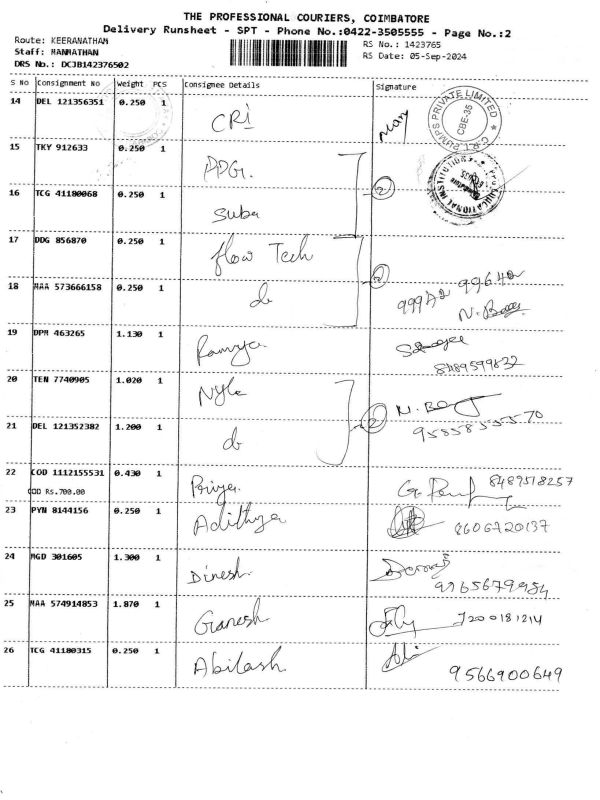 THE PROFESSIONAL COURIERS, COIMBATORE
Delivery Runsheet - SPT - Phone No.:0422-3505555 - Page No.:2
Route: KEERANATHAM
Staff: MANMATHAN
DRS No.: DCJB142376502
RS No.: 1423765
RS Date: 05-Sep-2024
S No Consignment No Weight PCS Consignee Details Signature
14 DEL 121356351 0.250 1 CRI
C.R.I. PUMPS PRIVATE LIMITED * CBE-35
15 TKY 912633 0.250 1
EDUCATIONAL INSTITUTIONS
16 TCG 41180068 0.250 1 Suba 2
17 DDG 856870 0.250 1 flow Tech
18 MAA 573666158 0.250 1 do 2
N.
19 DPM 463265 1.130 1 Ramya
8489599832
20 TEN 7740905 1.020 1 Nyle
21 DEL 121352382 1.200 1 do 2
22 COD 1112155531 0.430 1 Priya. 8489518257
COD Rs.700.00
23 PYN 8144156 0.250 1 Adithya 8606720137
24 MGD 301605 1.300 1 Dinesh.
25 MAA 574914853 1.870 1 Ganesh 7200181214
26 TCG 41180315 0.250 1 Abilash
9566900649